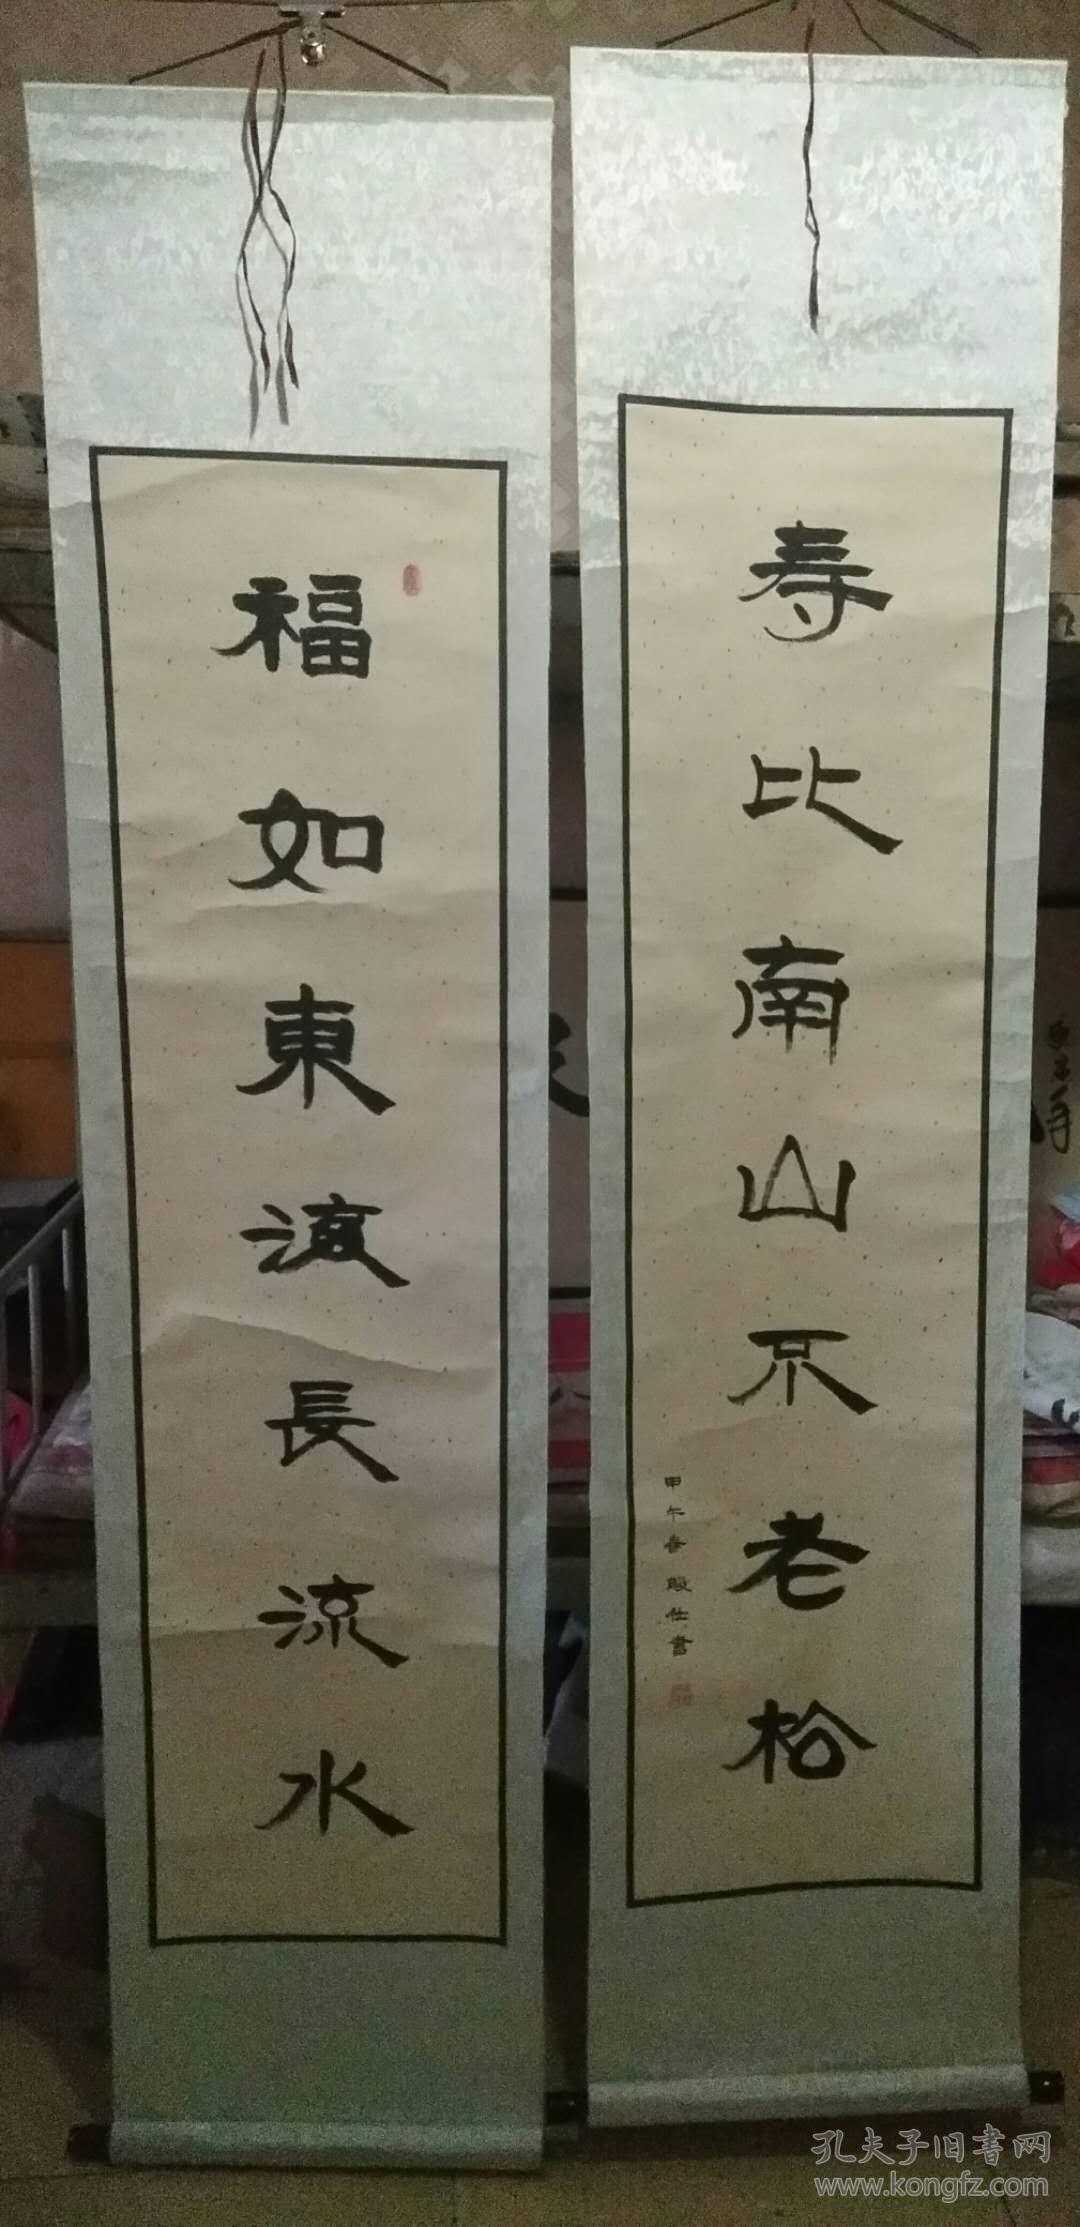 福如東海長流水
寿比南山不老松
甲午春仕書
孔夫子旧書网
www.kongfz.com